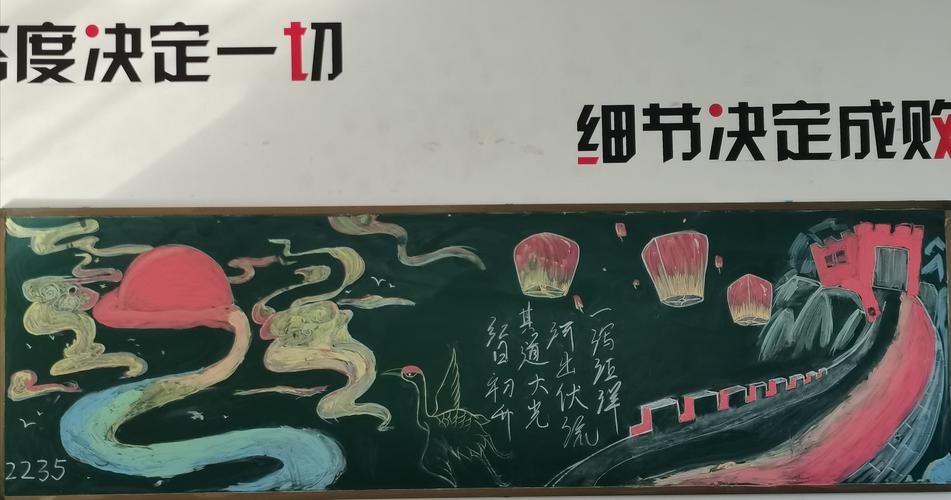 态度决定一切
细节决定成败
红日初升
其道大光
河出伏流
一泻汪洋
2235